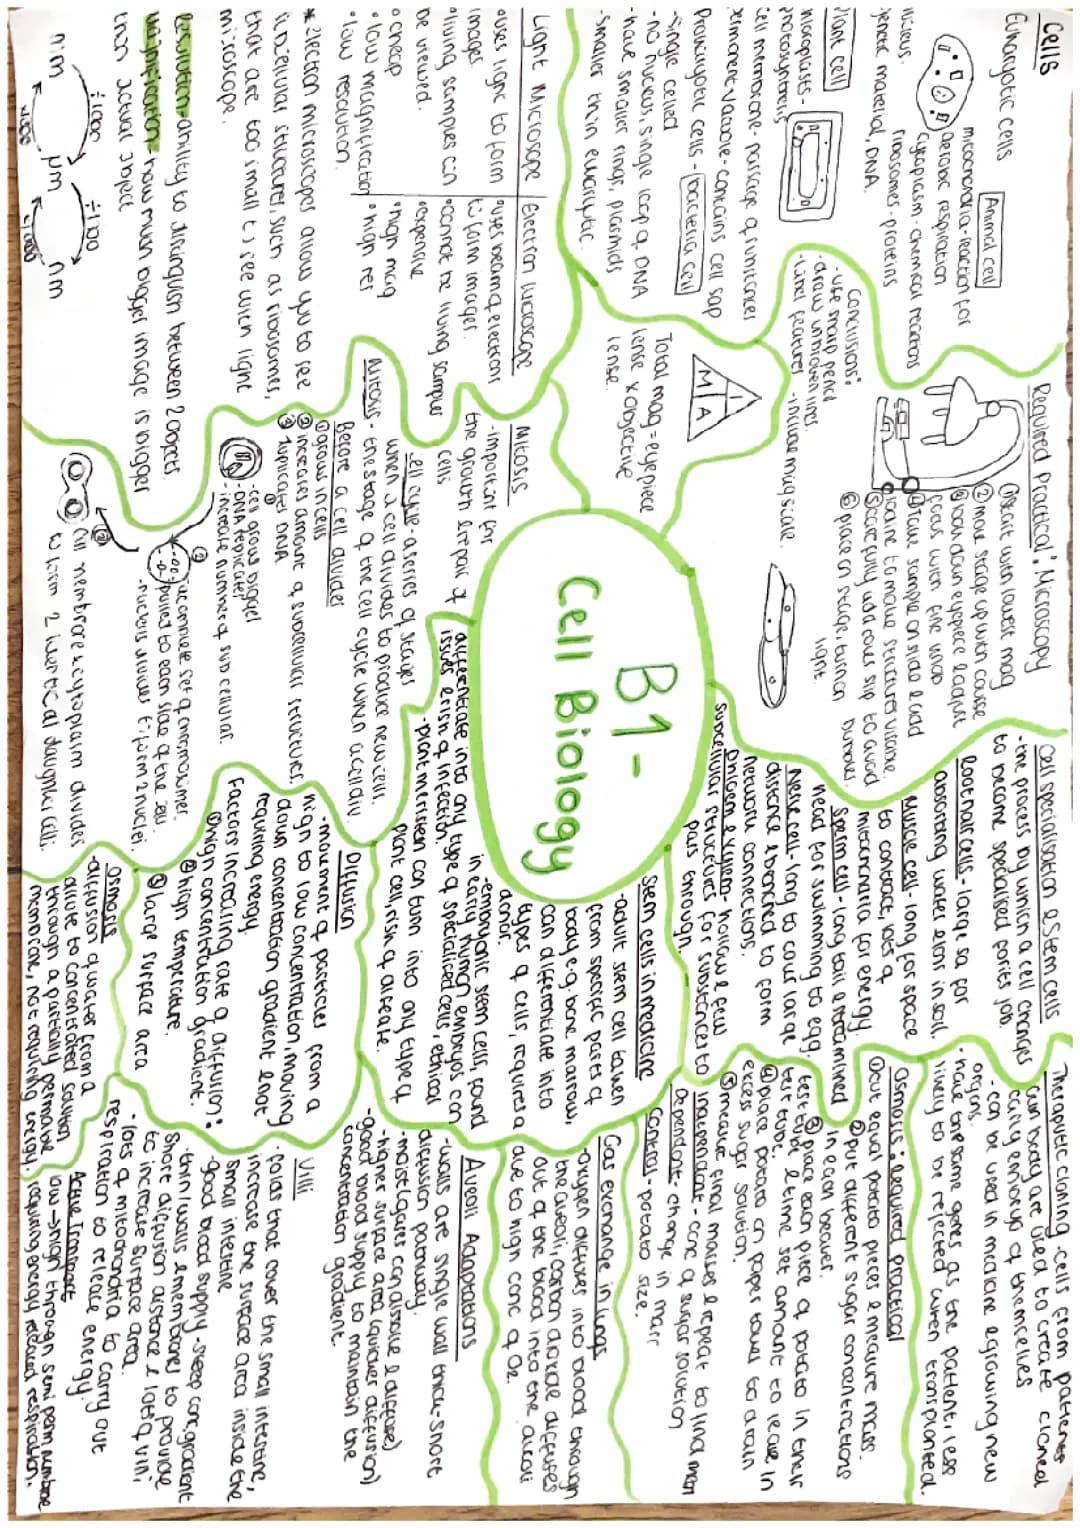 B1-
Cell Biology
Cells
Eukaryotic cells
Animal cell
mitochondria-reaction for
aerobic respiration
cytoplasm-chemical reactions
ribosomes-proteins
nucleus.
genetic material, DNA.
Plant cell
chloroplasts-
photosynthesis
cell membrane-passage of substances
permanent vacuole-contains cell sap
Prokaryotic cells - bacteria cell
-single celled
-no nucleus, single loop of DNA
-have smaller rings, plasmids
-smaller than eukaryotic.
Light Microscope
°uses light to form
images.
°living samples can
be viewed.
°cheap
°low magnification
°low resolution.
Electron Microscope
°uses beam of electrons
to form images.
°cannot be living samples
°expensive
°high mag
°high res
* Electron microscopes allow you to see
subcellular structures, such as ribosomes,
that are too small to see with light
microscope.
Resolution-ability to distinguish between 2 objects
Magnification-how much bigger image is bigger
than actual object
÷1000
mm
µm
nm
x1000
Required Practical: Microscopy
①Start with lowest mag
②move stage up with coarse
③look down eyepiece & adjust
focus with fine knob
④place sample on slide & add
iodine to make structures visible.
⑤carefully add cover slip to avoid
bubbles
⑥place on stage, turn on
light.
Conclusions:
-use sharp pencil
-draw unbroken lines.
-label features
-include mag scale.
I
M A
Total mag = eyepiece
lense x objective
lense.
Mitosis
-important for
the growth & repair of
cells
cell cycle-a series of stages
when a cell divides to produce new cells.
Mitosis - the stage of the cell cycle when a cell div
Before a cell divides
①grows in cells
②increases amount of subcellular structures.
③duplicates DNA
①
-cell grows bigger
-DNA replicates
-increase number of sub cellular.
②
-complete set of chromosomes
pulled to each side of the cell.
-nucleus divides to form 2 nuclei
③
Cell membrane & cytoplasm divides
to form 2 identical daughter cells.
Cell specialisation & Stem cells
-the process by which a cell changes
to become specialised for its job.
Root hair cells-large sa for
absorbing water & ions in soil.
Muscle cell-long for space
to contract, lots of
mitochondria for energy
Sperm cell-long tail & streamlined
head for swimming to egg.
Nerve cell-long to cover large
distance & branched to form
network connections.
Phloem & Xylem-hollow & few
subcellular structures for substances to
pass through.
Stem cells in medicine
-adult stem cell taken
from specific parts of
body e.g. bone marrow,
can differentiate into
types of cells, requires a
donor.
-embryonic stem cells, found
in early human embryos can
differentiate into any type of specialised cells, ethical
issues & risk of infection.
-plant meristem can turn into any type of
plant cell, risk of disease.
Therapeutic cloning-cells from patients
own body are used to create cloned
early embryo of themselves
-can be used in medicine & growing new
organs.
-have the same genes as the patient, less
likely to be rejected when transplanted.
Osmosis: required practical
①cut equal potato pieces & measure mass.
②put different sugar concentrations
in each beaker.
③place each piece of potato in their
test tube & time set amount to leave in
test tube.
④place potato on paper towel to drain
excess sugar solution.
⑤measure final masses & repeat to find mean
Independent - conc of sugar solution
Dependent - change in mass
Control-potato size.
Diffusion
-movement of particles from a
high to low concentration, moving
down concentration gradient & not
requiring energy.
Factors increasing rate of diffusion:
①high concentration gradient.
②high temperature.
③large surface area
Osmosis
-diffusion of water from a
dilute to concentrated solution
through a partially permeable
membrane, not requiring energy.
Gas exchange in lungs
-oxygen diffuses into blood through
the alveoli, carbon dioxide diffuses
out of the blood into the alveoli
due to high conc of O₂.
Alveoli Adaptations
-walls are single wall thick-short
diffusion pathway.
-moist (gases can dissolve & diffuse)
-higher surface area (quicker diffusion)
-good blood supply to maintain the
concentration gradient.
Villi
-folds that cover the small intestine,
increase the surface area inside the
small intestine
-good blood supply-steep conc gradient
-thin walls & membranes to provide
short diffusion distance & lots of villi
to increase surface area.
-lots of mitochondria to carry out
respiration to release energy.
Active Transport
low → high through semi perm membrane
requiring energy released respiration.